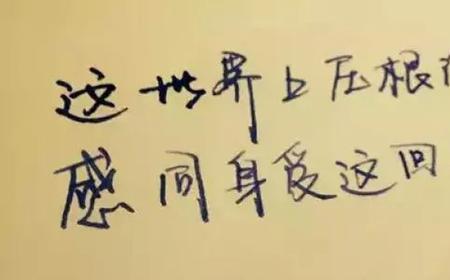 这世界上压根
感同身爱这回